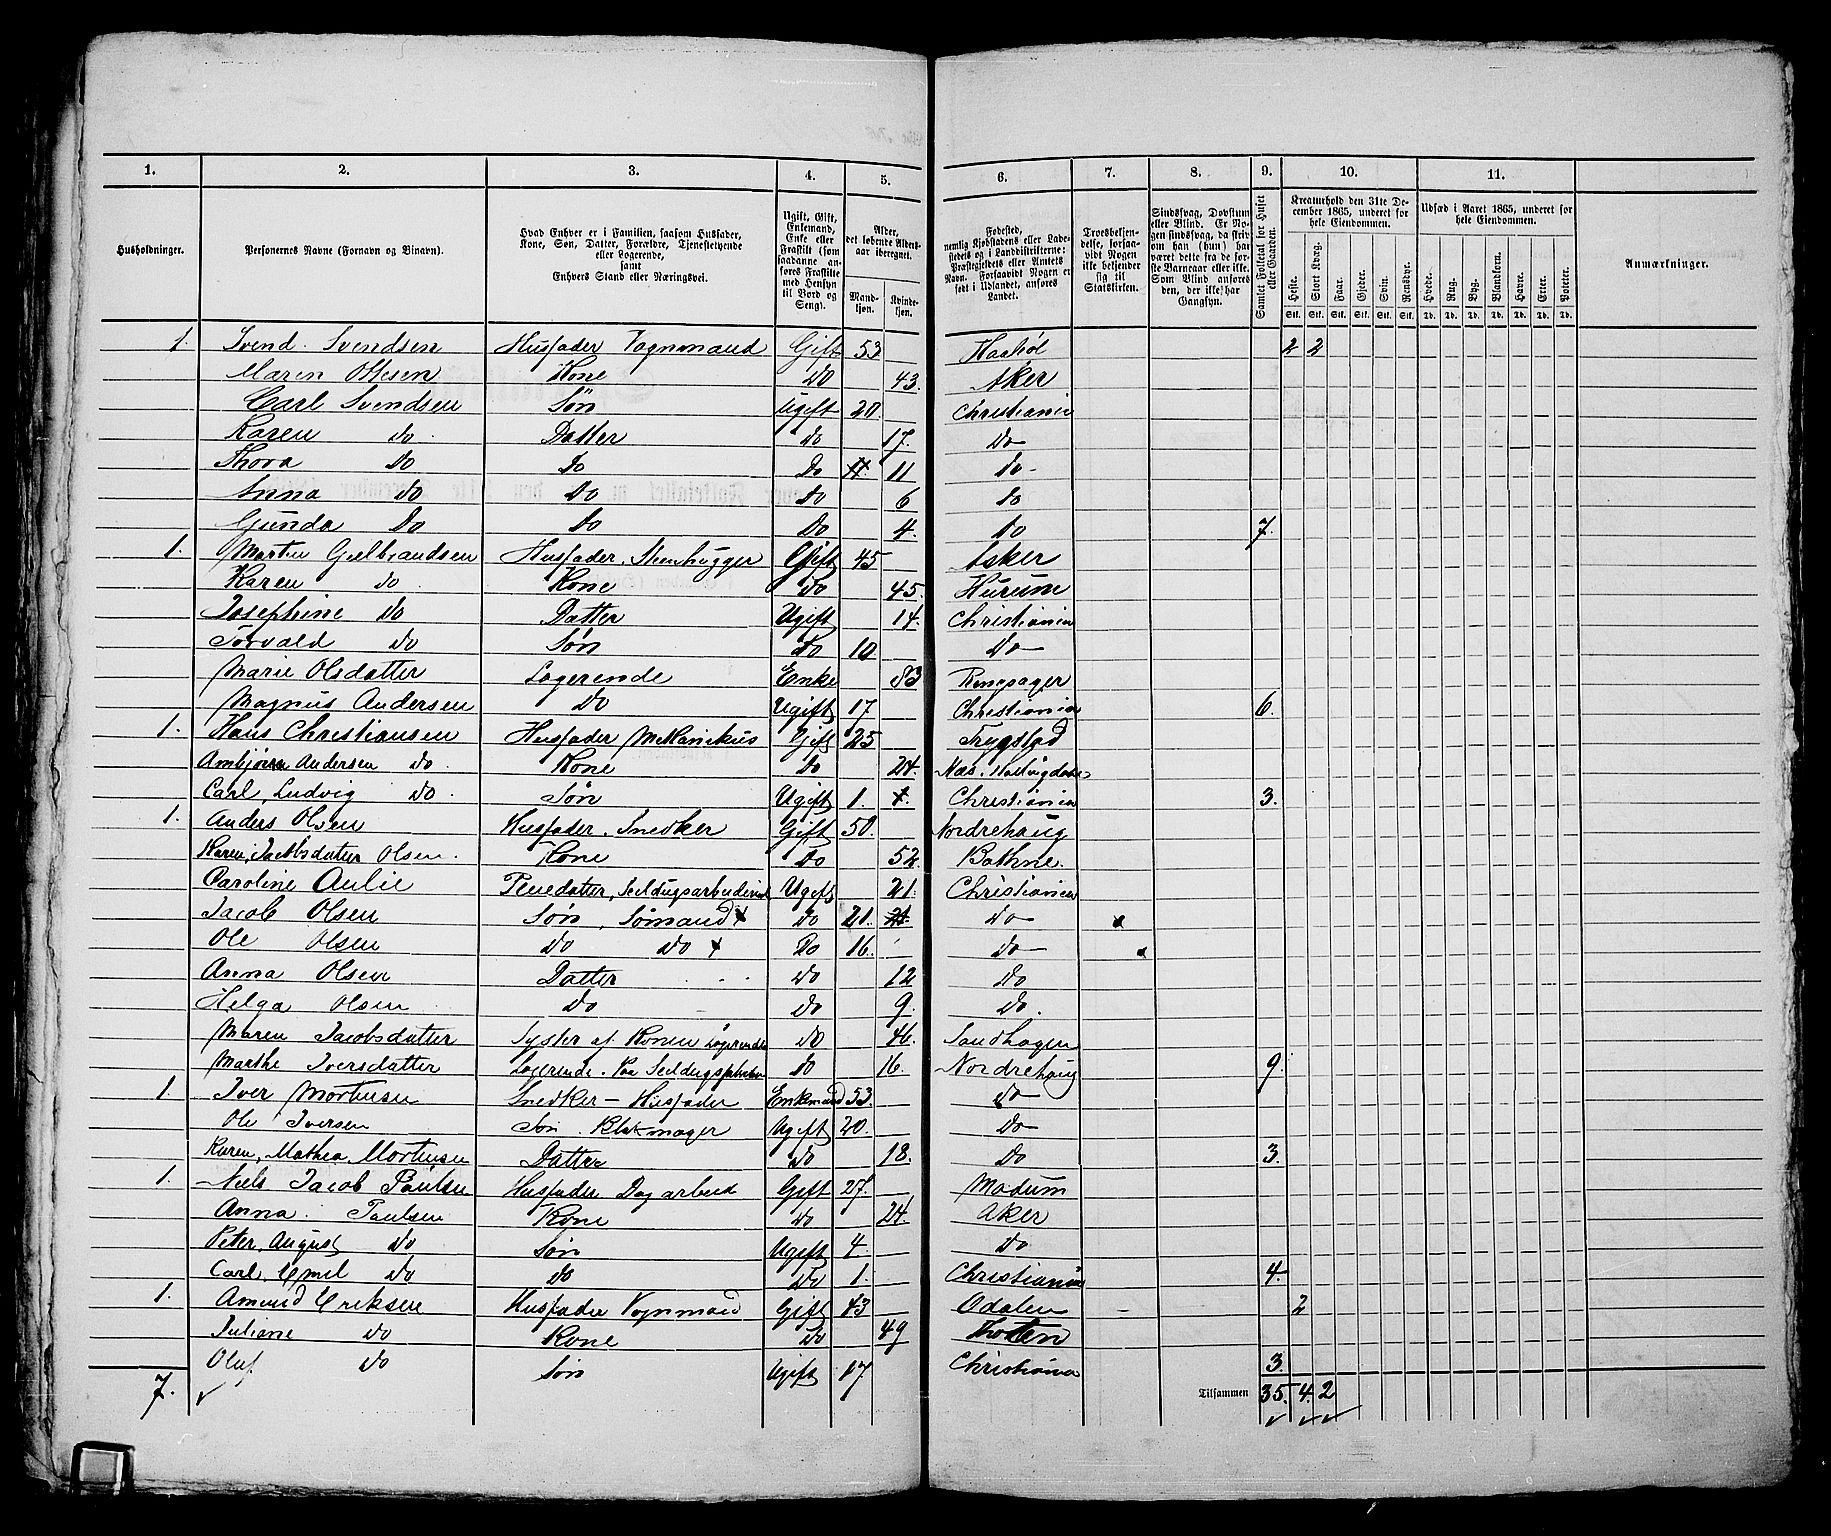 1. 2. 3. 4. 5. 6. 7. 8. 9. 10. 11.
Husholdninger.
Personernes Navne (Fornavn og Binavn).
Hvad Enhver er i Familien, saasom Husfader, Kone, Søn, Datter, Forældre, Tjenestetyende eller Logerende, samt Enhvers Stand eller Næringsvei.
Ugift, Gift, Enkemand, Enke eller Fraskilt (som saadanne anføres Fraskilte med Hensyn til Bord og Seng).
Alder, det løbende Alders-aar iberegnet.
Mandkjøn. Kvindekjøn.
Fødested, nemlig Kjøbstadens eller Ladestedets og i Landdistrikterne: Præstegjeldets eller Amtets Navn. Forsaavidt Nogen er født i Udlandet, anføres Landet.
Troesbekjendelse, forsaavidt Nogen ikke bekjender sig til Statskirken.
Sindssvag, Døvstum eller Blind. Er Nogen sindssvag, da skrives om han (hun) har været dette fra de første Barneaar eller ikke. Som Blind anføres den, der ikke har Gangsyn.
Samlet Folketal for Huset eller Gaarden.
Kreaturhold den 31te December 1865, underet for hele Eiendommen.
Heste. Stort Kvæg. Faar. Gjeder. Svin. Rensdyr.
Stk. Stk. Stk. Stk. Stk. Stk.
Udsæd i Aaret 1865, underet for hele Eiendommen.
Hvede. Rug. Byg. Blankorn. Havre. Erter. Poteter.
Td. Td. Td. Td. Td. Td. Td.
Anmærkninger.
1. Svend Svendsen Husfader Vognmand Gift 53 2 2
Maren Ottesen Kone Do 43. Aker
Carl Svendsen Søn Ugift 20. Christiania
Karen Do Datter Do 17. Do
Thora Do Do Do 11 Do
Anna Do Do Do 6 Do
Gunda Do Do Do 4. Do 7.
1. Martin Gulbrandsen Husfader, Steenhugger Gift 45 Asker
Karen Do Kone Do 45. Hurum
Josephine Do Datter Ugift 14. Christiania
Torvald Do Søn Do 10 Do
Marie Olsdatter Logerende Enke 83
Magnus Andersen Do Ugift 17 Christiania 6.
1. Hans Christiansen Husfader Mekanikus Gift 25 Trygstad
Andersen Do Kone Do 24. Næs
Carl Ludvig Do Søn Ugift 1. Christiania 3.
1. Anders Olsen Husfader, Snedker Gift 50. Nordrehaug
Karen Jacobsdatter Olsen Kone Do 52. Bothne
Caroline Aulie Ugift 21. Christiania
Jacob Olsen Søn, Sømand Do 21. Do
Ole Olsen Do Do Do 16. Do
Anna Olsen Datter Do 12 Do
Helga Olsen Do Do 9. Do.
Maren Jacobsdatter Syster af Konen Logerende Do 46.
Marthe Iversdatter Logerende. Paa Do 16. Nordrehaug 9.
1. Iver Mortensen Snedker - Husfader Enkmand 53. Do
Ole Iversen Søn. Ugift 20. Do
Karen, Mathea Mortensen Datter Do 18. Do 3.
1. Niels Jacob Paulsen Husfader Dagarbeid Gift 27. Modum
Anna Paulsen Kone Do 24. Aker
Peter, August Do Søn Ugift 4 Do
Carl, Emil Do Do Do 1. Christiania 4.
1. Amund Eriksen Husfader Vognmand Gift 43 Odalen 2
Juliane Do Kone Do 49 Thoten
Oluf Do Søn Ugift 17 Christiania 3.
7. Tilsammen 35. 4. 2